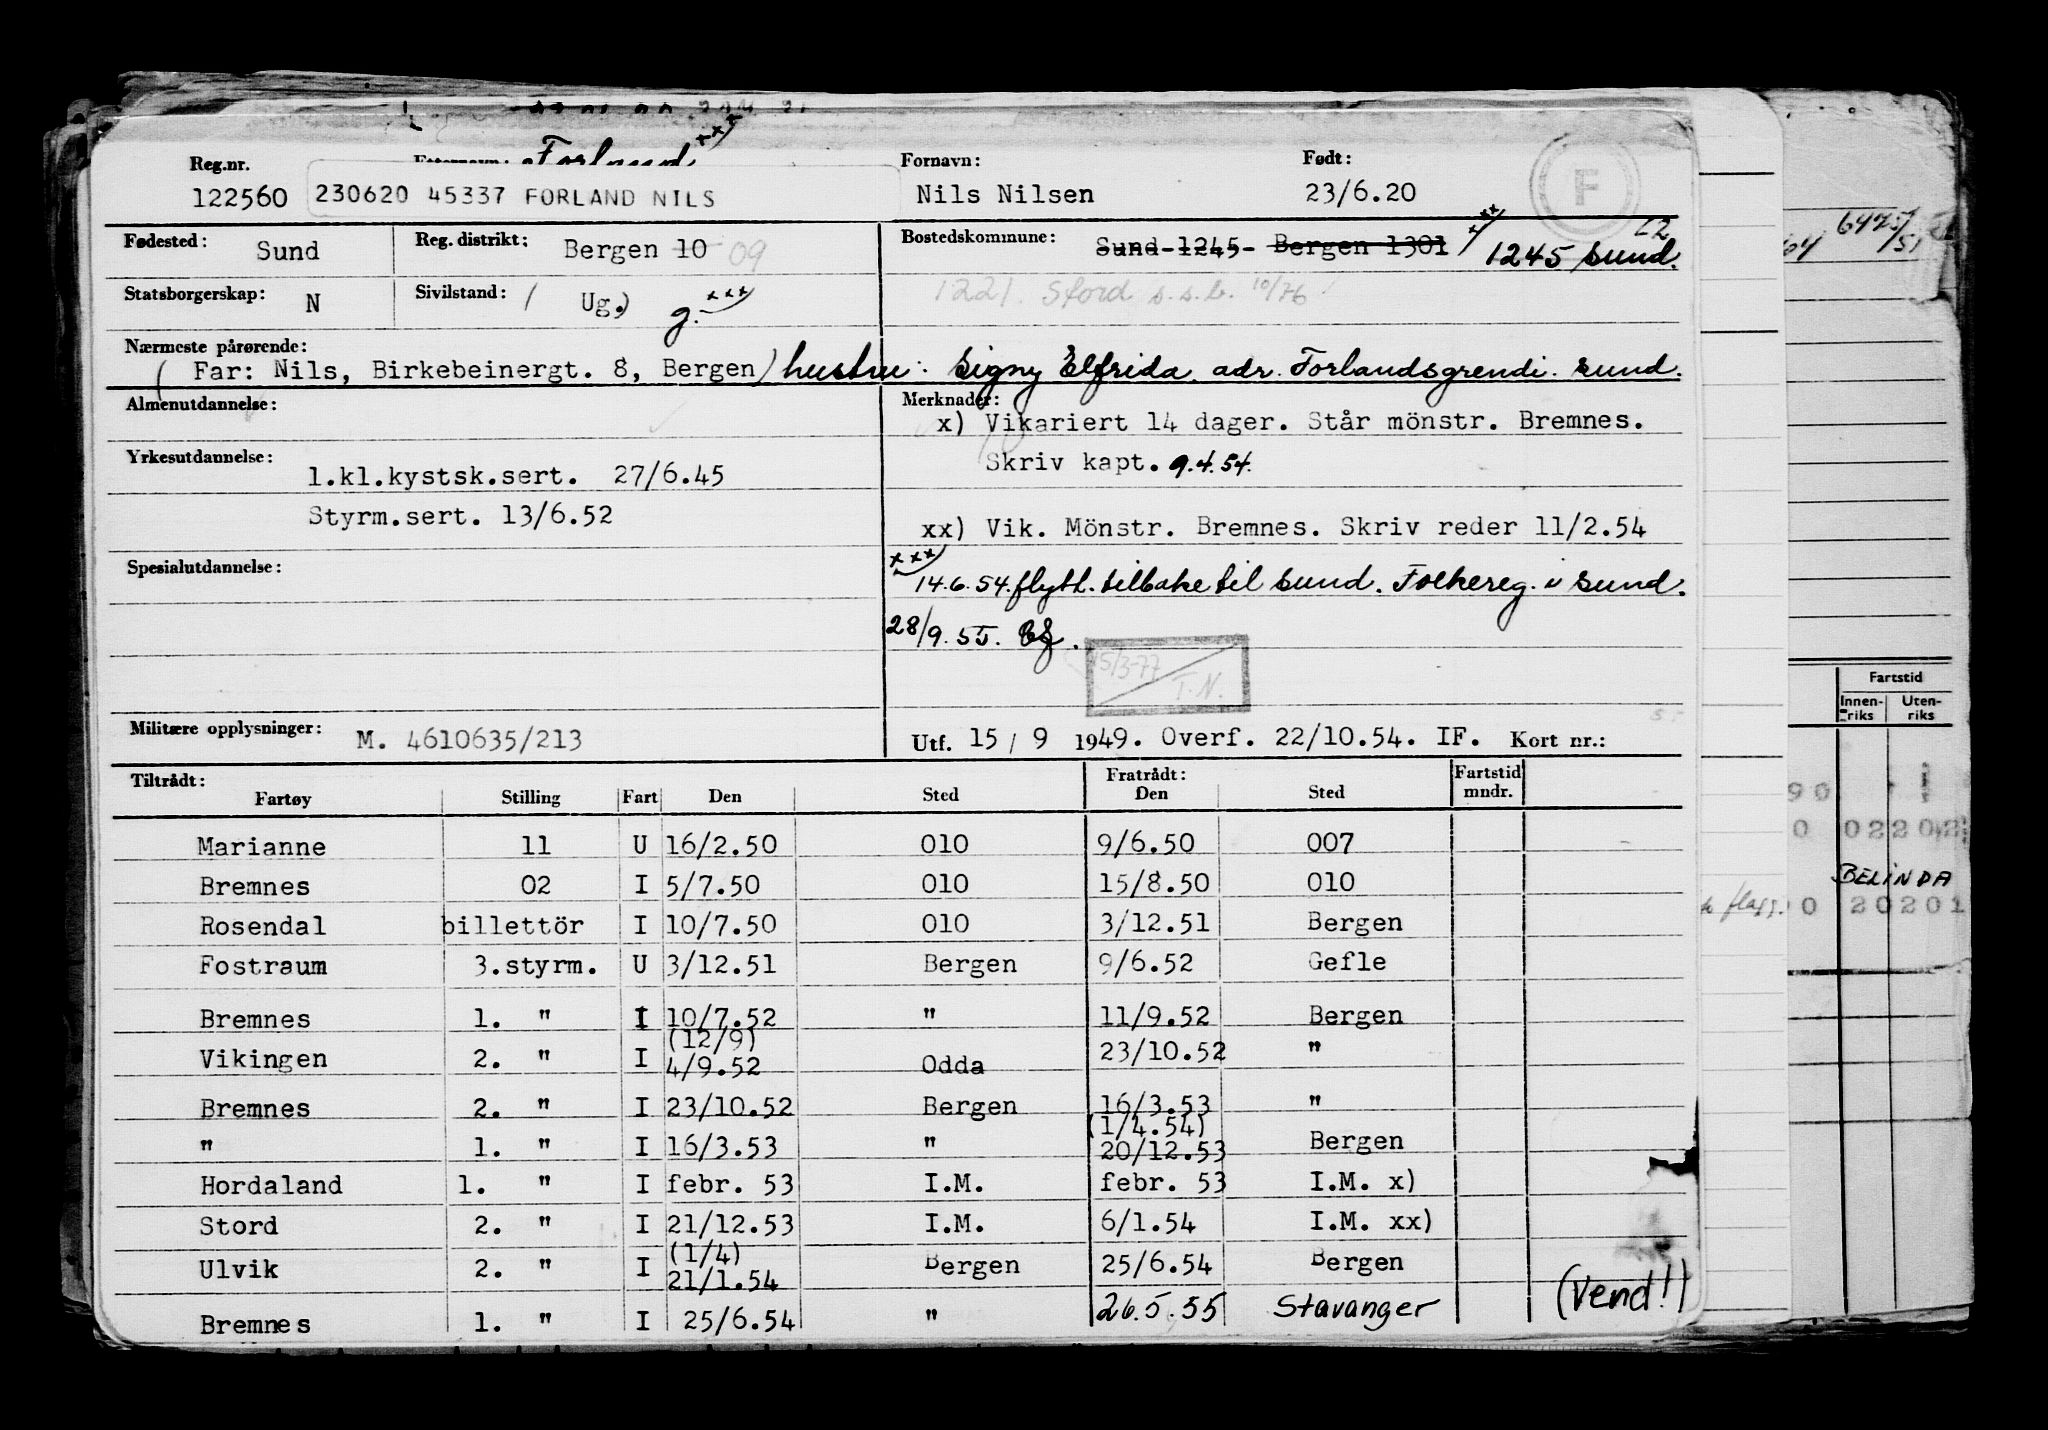 Reg.nr. Etternavn: Forland xxx Fornavn: Født:
122560 230620 45337 FORLAND NILS Nils Nilsen 23/6.20 F
Fødested: Sund Reg. distrikt: Bergen 10 09 Bostedskommune: Sund 1245 Bergen 1301 xx) 1245 Sund.
Statsborgerskap: N Sivilstand: ( Ug.) g. xxx) 1221. Stord s.s.b. 10/76
Nærmeste pårørende:
( Far: Nils, Birkebeinergt. 8, Bergen) hustru: Signy Elfrida. adr. Forlandsgrendi. Sund.
Almenutdannelse: Merknader:
x) Vikariert 14 dager. Står mönstr. Bremnes.
Yrkesutdannelse: Skriv kapt. 9.4.54.
1.kl.kystsk.sert. 27/6.45
Styrm.sert. 13/6.52 xx) Vik. Mönstr. Bremnes. Skriv reder 11/2.54
Spesialutdannelse: xxx) 14.6.54. flytt. tilbake til Sund. Folkereg. i Sund.
28/9.55.
15/3-77 T.N.
Militære opplysninger: M. 4610635/213 Utf. 15 / 9 1949. Overf. 22/10.54. IF. Kort nr.:
Tiltrådt: Fratrådt: Fartstid
Fartøy Stilling Fart Den Sted Den Sted mndr.
Marianne 11 U 16/2.50 010 9/6.50 007
Bremnes 02 I 5/7.50 010 15/8.50 010
Rosendal billettör I 10/7.50 010 3/12.51 Bergen
Fostraum 3.styrm. U 3/12.51 Bergen 9/6.52 Gefle
Bremnes 1. " I 10/7.52 " 11/9.52 Bergen
Vikingen 2. " I (12/9) 4/9.52 Odda 23/10.52 "
Bremnes 2. " I 23/10.52 Bergen 16/3.53 "
" 1. " I 16/3.53 " (1/4.54) 20/12.53 Bergen
Hordaland 1. " I febr. 53 I.M. febr. 53 I.M. x)
Stord 2. " I 21/12.53 I.M. 6/1.54 I.M. xx)
Ulvik 2. " I (1/4) 21/1.54 Bergen 25/6.54 Bergen
Bremnes 1. " I 25/6.54 " 26.5.55 Stavanger (Vend!)
Fartstid
Innen-riks Uten-riks
90
0 02202
BELINDA
flagg. 0 20201